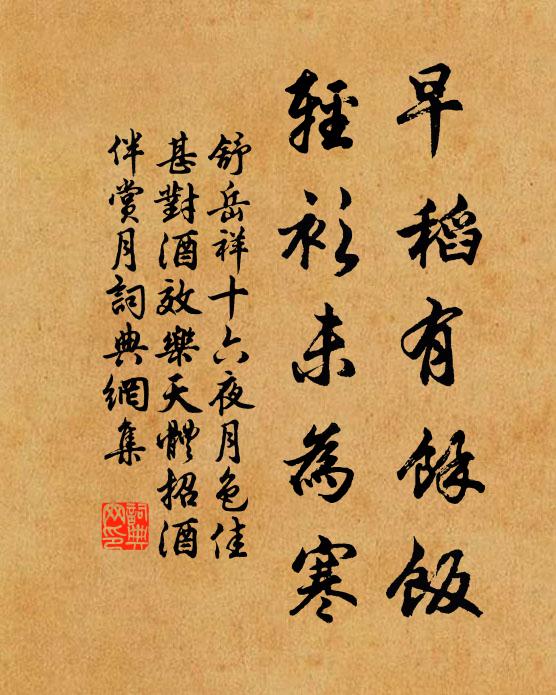 早稻有餘飯
輕衫未為寒
舒岳祥十六夜月色佳
甚對酒效樂天體招酒
伴賞月詞典網集
詞典網印